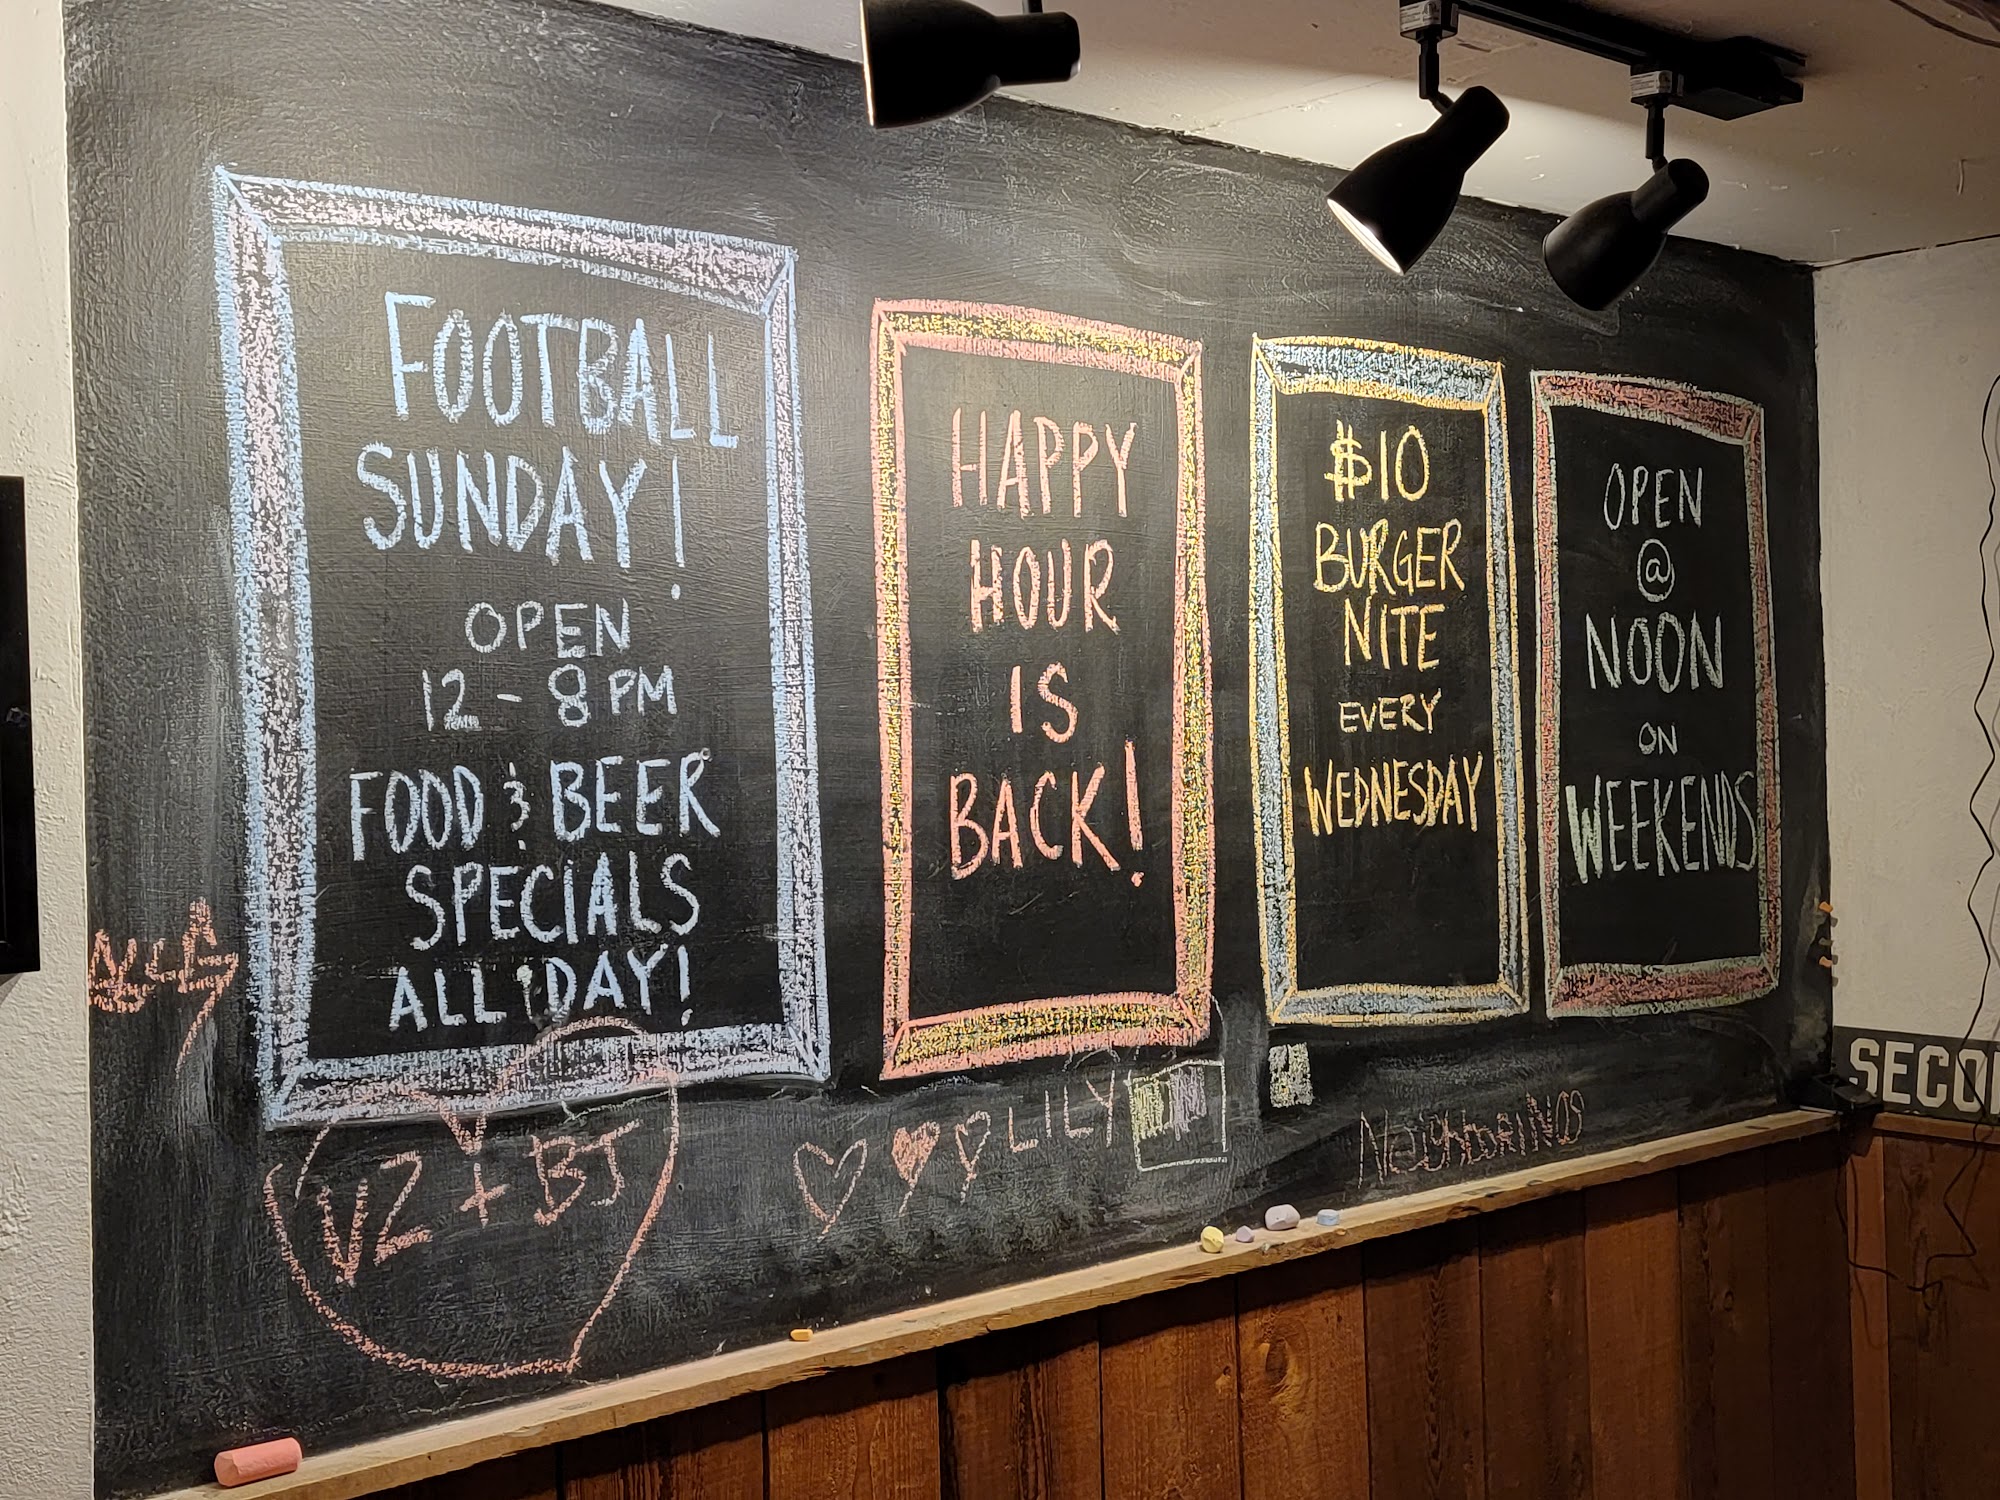 FOOTBALL
SUNDAY!
OPEN
12 - 8 PM
FOOD & BEER
SPECIALS
ALL DAY!
HAPPY
HOUR
IS
BACK!
$10
BURGER
NITE
EVERY
WEDNESDAY
OPEN
@
NOON
ON
WEEKENDS
VZ + BJ
LILY
SECO